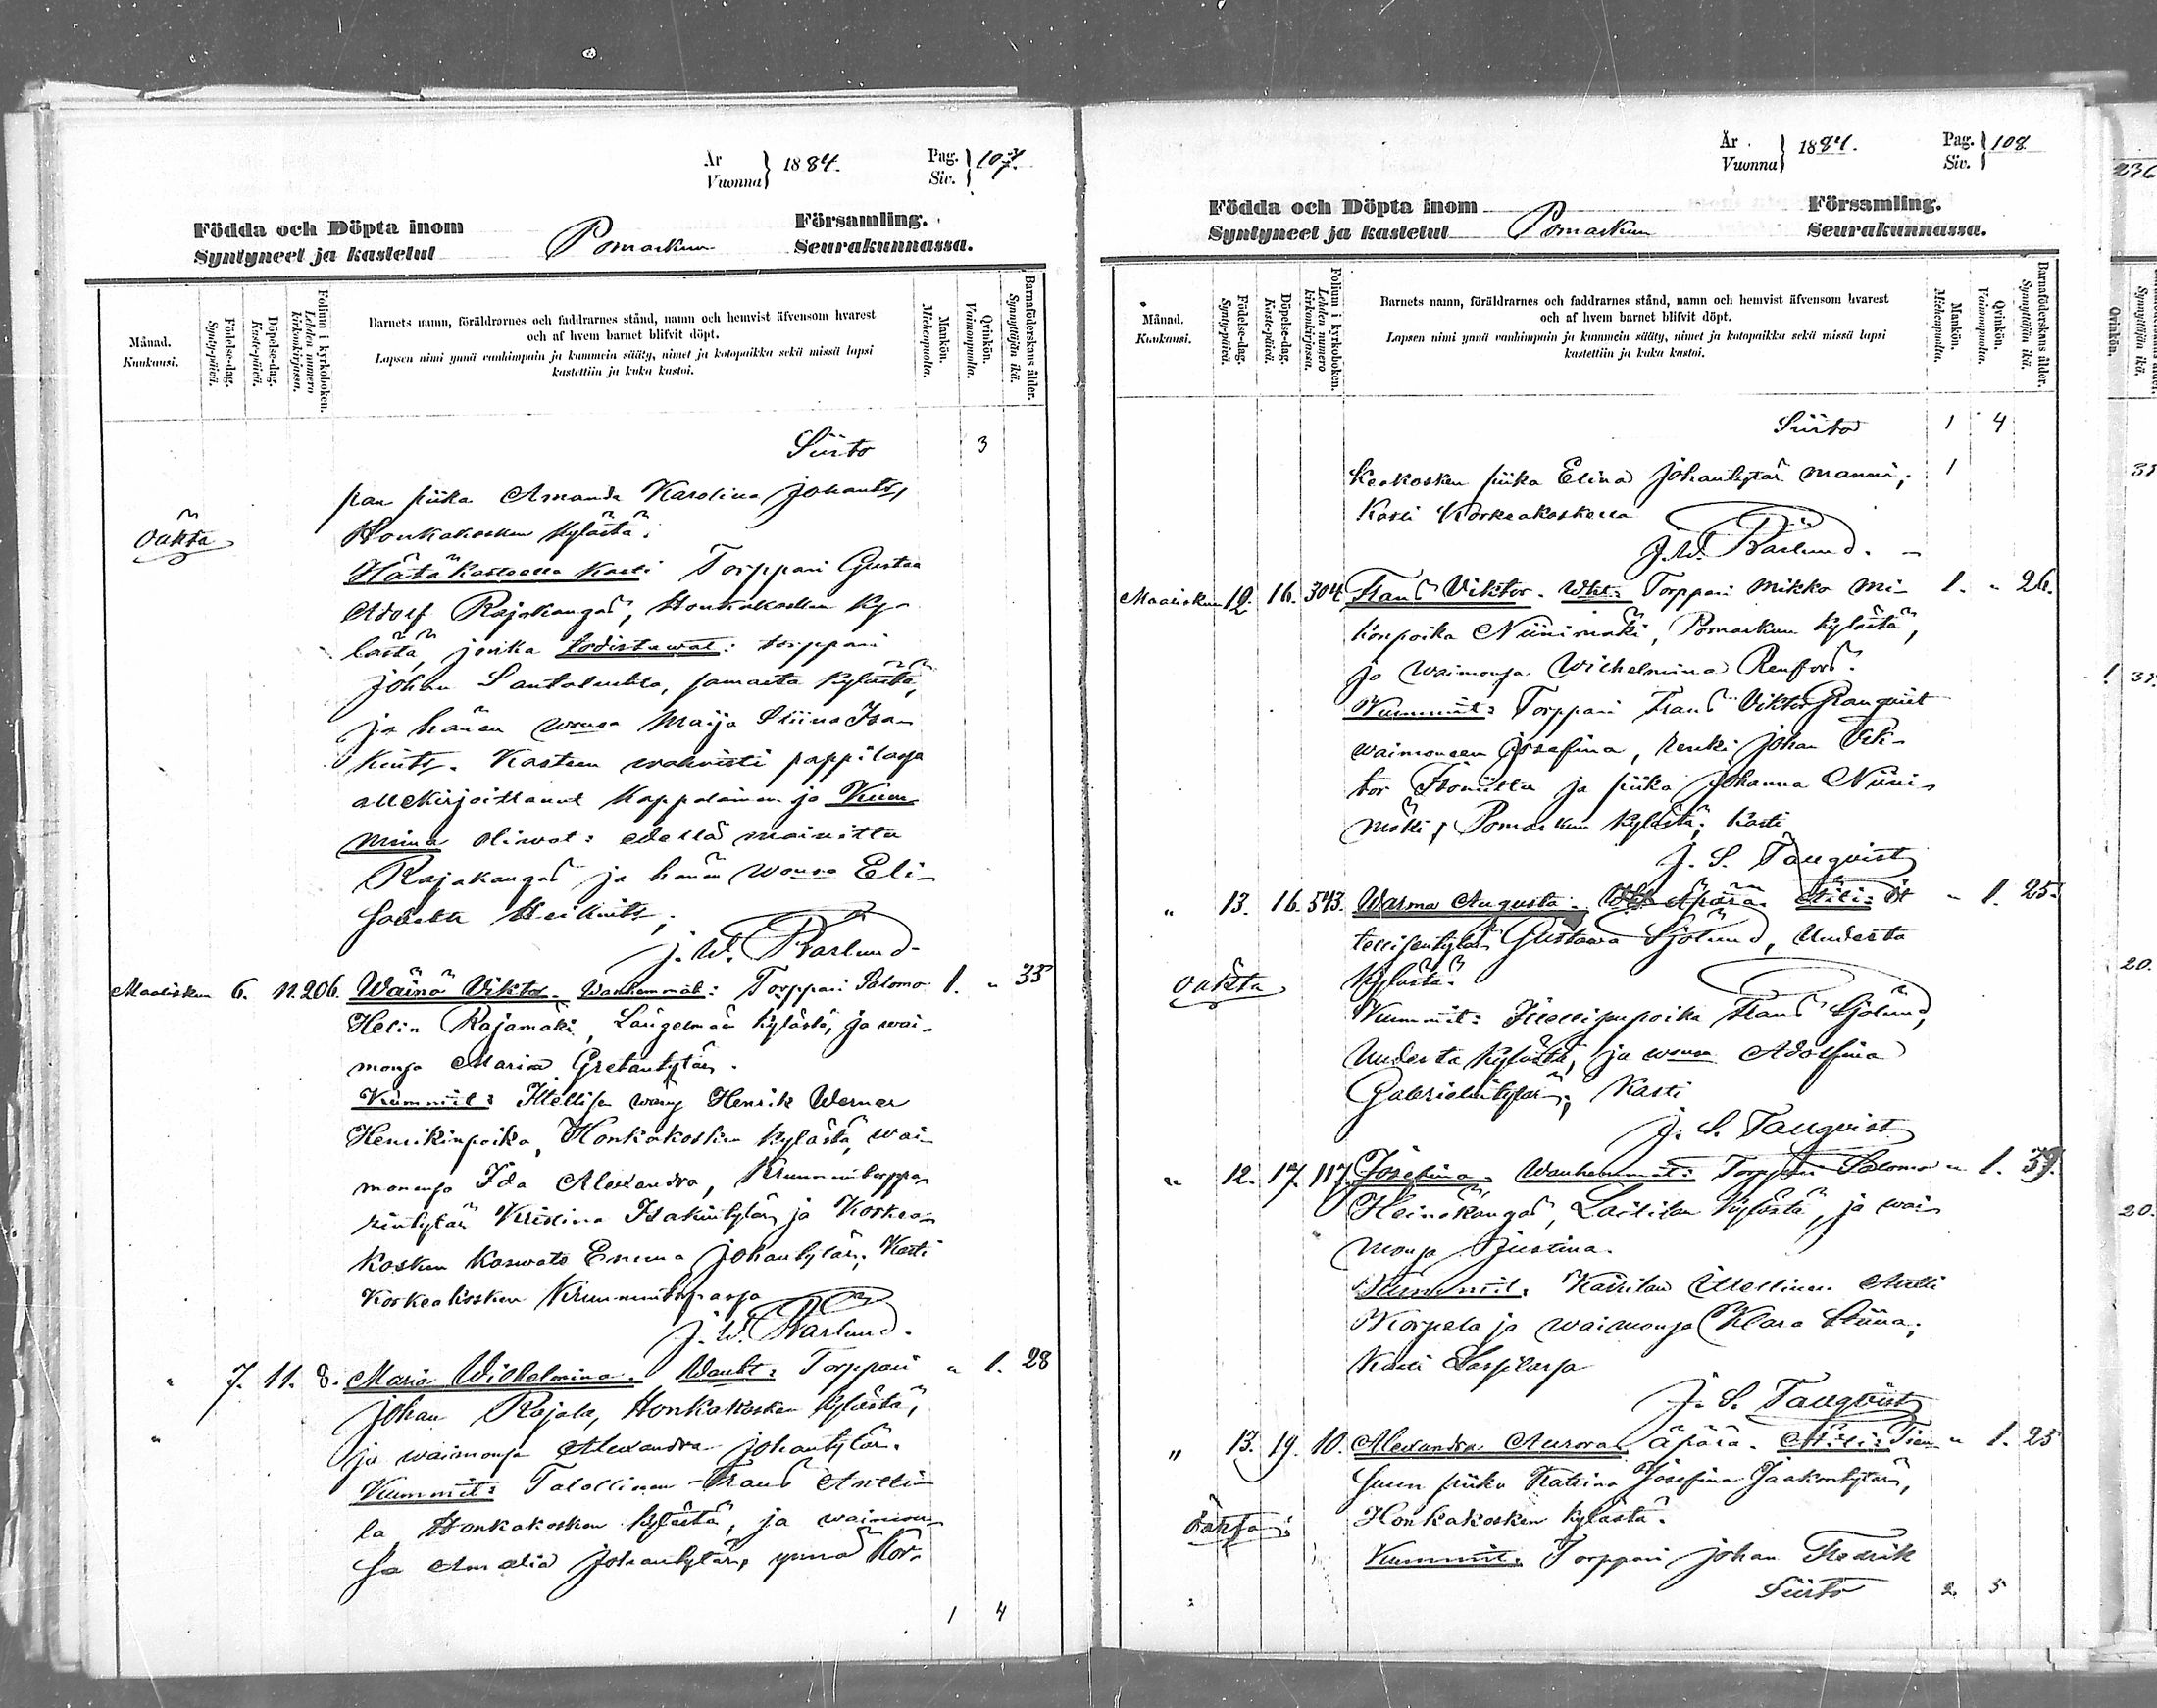 År
Vuonna } 1884.
Pag.
Siv. } 107.
Födda och Döpta inom
Syntyneet ja kastetut
Pomarkun
Församling.
Seurakunnassa.
Månad.
Kuukausi.
Födelse-dag.
Synty-päivä.
Döpelse-dag.
Kaste-päivä.
Folium i kyrkoboken.
Lehden numero
kirkonkirjassa.
Barnets namn, föräldrarnes och faddrarnes stånd, namn och hemvist äfvensom hvarest
och af hvem barnet blifvit döpt.
Lapsen nimi ynnä vanhimpain ja kummein sääty, nimet ja kotopaikka sekä missä lapsi
kastettiin ja kuka kastoi.
Mankön.
Miehenpuolta.
Qvinkön.
Vaimonpuolta.
Barnaföderskans ålder.
Synnyttäjän ikä.
Siirto 3
pan piika Amanda Karolina Johantr,
Honkakosken kylästä.
oäkta
Hätäkasteella kasti Torppari Gustaa
Adorf Rajakangas, Honkakosken ky-
lästä, jonka todistawat: torppari
Johan Santaluhta, samasta kylästä,
ja hänen wmsa Maija Stiina Isa-
kintr. Kasteen wahwisti pappilassa
allekirjoittanut kappalainen ja Kum-
mina oliwat: edellä mainittu
Rajakangas ja hänen wmsa Eli-
sabeta Heikintr,
J. W. Barlund.
Maaliskun 6. 11. 206. Wäinö Viktor. Wanhemmat: Torppari Salomo 1. " 33
Helin Rajamäki, Längelmän kylästä, ja wai-
monsa Maria Gretantytär.
Kummit: Itsellisen wäwy Henrik Werner
Henrikinpoika, Honkakosken kylästä, wai-
monensa Ida Alexandra, Kruununtorppa-
rintytär Kristina Isakintytär ja Korkea-
kosken kaswatti Emma Johantytär; Kasti
Korkeakosken Kruununtorpassa
J. W. Barlund.
" 7. 11. 8. Maria Wilhelmina. Wanht: Torppari " 1. 28
Johan Rajala, Honkakosken kylästä,
ja waimonsa Alexandra Johantytär.
Kummit: Talollinen Frans Antti-
la Honkakosken kylästä, ja waimon-
sa Amalia Johantytär, ynnä Kor-
1 4
År
Vuonna } 1884.
Pag.
Siv. } 108
Födda och Döpta inom
Syntyneet ja kastetut
Pomarkun
Församling.
Seurakunnassa.
Månad.
Kuukausi.
Födelse-dag.
Synty-päivä.
Döpelse-dag.
Kaste-päivä.
Folium i kyrkoboken.
Lehden numero
kirkonkirjassa.
Barnets namn, föräldrarnes och faddrarnes stånd, namn och hemvist äfvensom hvarest
och af hvem barnet blifvit döpt.
Lapsen nimi ynnä vanhimpain ja kummein sääty, nimet ja kotopaikka sekä missä lapsi
kastettiin ja kuka kastoi.
Mankön.
Miehenpuolta.
Qvinkön.
Vaimonpuolta.
Barnaföderskans ålder.
Synnyttäjän ikä.
Siirto 1 4
keakosken piika Elina Johantytär Manni; 1
Kasti Korkeakoskella
J. W. Barlund.
Maaliskun 12. 16. 304 Frans Viktor. Wht: Torppari Mikko Mi- 1. " 26.
konpoika Niinimäki, Pomarkun kylästä,
ja waimonsa Wilhelmina Renfors.
Kummit: Torppari Frans Viktor Granqvist
waimoneen Josefina, renki Johan Vik-
tor ja piika Johanna Niini-
mäki, Pomarkun kylästä; kasti
J. S. Tanqvist
" 13. 16. 543. Warma Augusta. Äpärä. Äiti: It- " 1. 25.
tellisentytär Gustawa Sjölund, Uudesta
oäkta
kylästä.
Kummit: Itsellisenpoika Frans Sjölund,
Uudesta kylästä, ja wmsa Adolfina
Gabrielintytär; Kasti
J. S. Tanqvist
" 12. 17. 117. Josefina. Wanhemmat: Torppari Salomo " 1. 39.
Heinäkangas, Laitilan kylästä, ja wai-
monsa Justina.
Kummit: Itsellinen Antti
Korpela ja waimonsa Klara Stiina;
Kasti
J. S. Tanqvist
" 13. 19. 10. Alexandra Aurora. äpärä. Äiti: Tien- " 1. 25
suun piika Katrina Josefina Jaakontytär,
Honkakosken kylästä.
oäkta
Kummit: Torppari Johan Fredrik
Siirto 2. 5
236
Qvinkön.
Synnyttäjän ikä.
20.
20.